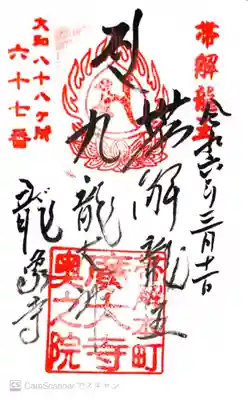 帯解龍王
令和六年三月十一日
帯解龍王
九龍大神
龍象寺
大和八十八ヶ所
六十七番
帯解本町
廣大寺
奥之院
CamScanner でスキャン